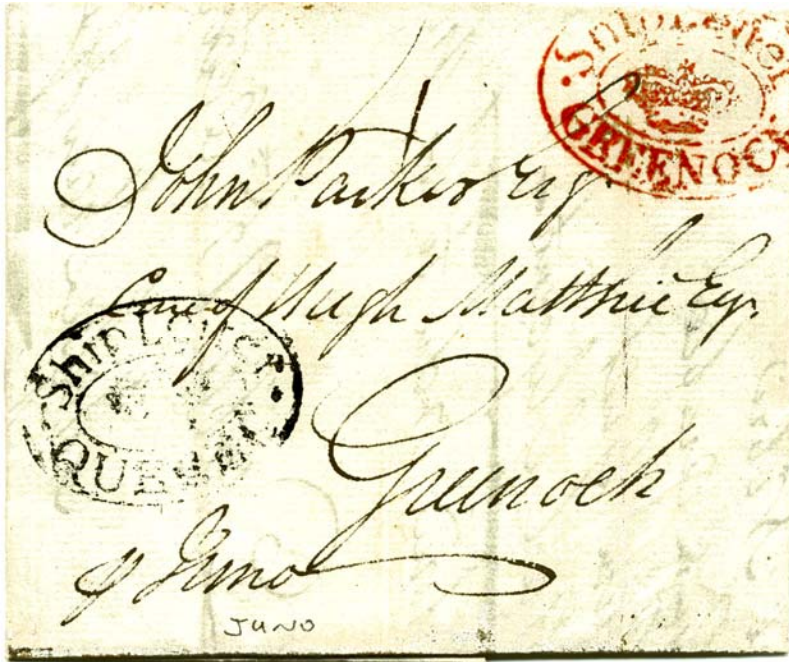 Ship Letter
GREENOCK
John Parker Esq.
Care of Hugh Matthie Esq.
Ship Letter
QUEBEC
Greenock
p Juno
JUNO